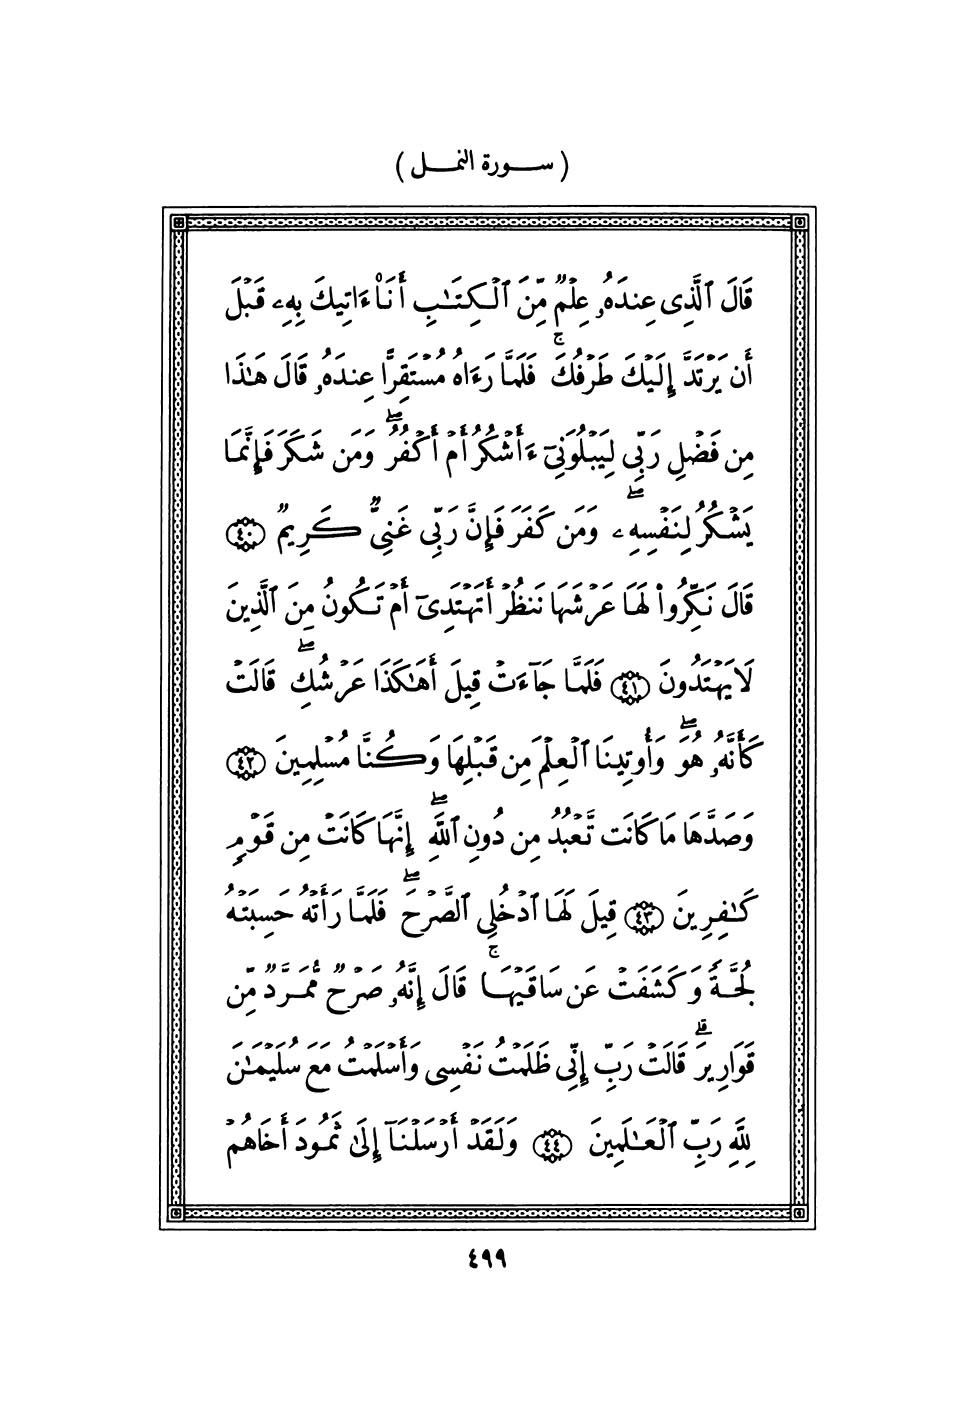 ( سورة النمل )
قَالَ ٱلَّذِى عِندَهُۥ عِلْمٌ مِّنَ ٱلْكِتَٰبِ أَنَا۠ ءَاتِيكَ بِهِۦ قَبْلَ
أَن يَرْتَدَّ إِلَيْكَ طَرْفُكَ ۚ فَلَمَّا رَءَاهُ مُسْتَقِرًّا عِندَهُۥ قَالَ هَٰذَا
مِن فَضْلِ رَبِّى لِيَبْلُوَنِىٓ ءَأَشْكُرُ أَمْ أَكْفُرُ ۖ وَمَن شَكَرَ فَإِنَّمَا
يَشْكُرُ لِنَفْسِهِۦ ۖ وَمَن كَفَرَ فَإِنَّ رَبِّى غَنِىٌّ كَرِيمٌ ﴿٤٠﴾
قَالَ نَكِّرُوا۟ لَهَا عَرْشَهَا نَنظُرْ أَتَهْتَدِىٓ أَمْ تَكُونُ مِنَ ٱلَّذِينَ
لَا يَهْتَدُونَ ﴿٤١﴾ فَلَمَّا جَآءَتْ قِيلَ أَهَٰكَذَا عَرْشُكِ ۖ قَالَتْ
كَأَنَّهُۥ هُوَ ۖ وَأُوتِينَا ٱلْعِلْمَ مِن قَبْلِهَا وَكُنَّا مُسْلِمِينَ ﴿٤٢﴾
وَصَدَّهَا مَا كَانَت تَّعْبُدُ مِن دُونِ ٱللَّهِ ۖ إِنَّهَا كَانَتْ مِن قَوْمٍ
كَٰفِرِينَ ﴿٤٣﴾ قِيلَ لَهَا ٱدْخُلِى ٱلصَّرْحَ ۖ فَلَمَّا رَأَتْهُ حَسِبَتْهُ
لُجَّةً وَكَشَفَتْ عَن سَاقَيْهَا ۚ قَالَ إِنَّهُۥ صَرْحٌ مُّمَرَّدٌ مِّن
قَوَارِيرَ ۗ قَالَتْ رَبِّ إِنِّى ظَلَمْتُ نَفْسِى وَأَسْلَمْتُ مَعَ سُلَيْمَٰنَ
لِلَّهِ رَبِّ ٱلْعَٰلَمِينَ ﴿٤٤﴾ وَلَقَدْ أَرْسَلْنَآ إِلَىٰ ثَمُودَ أَخَاهُمْ
٤٩٩